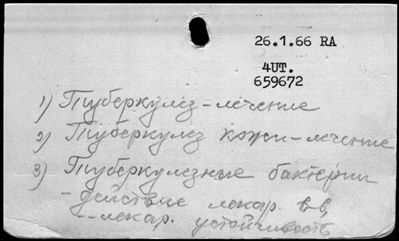 26.1.66 RA
4UT.
659672
1) Туберкулез-лечение
2) Туберкулез кожи-лечение
3) Туберкулезные бактерии
-действие лекар. в-в
-лекар. устойчивость